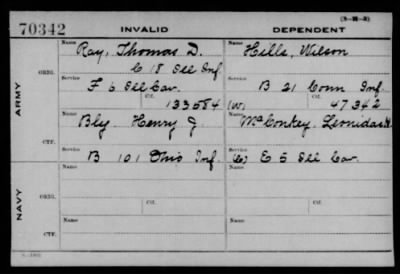 70342 INVALID DEPENDENT (3-M-3)
ARMY
ORIG.
Name Ray, Thomas D. Name Hills, Wilson
C 18 Ill Inf
Service F 6 Ill Cav. Service B 21 Conn Inf.
Ctf. 133584 (W) Ctf. 47342
CTF.
Name Bly Henry J. Name McConkey, Leonidas
Service B 101 Ohio Inf. Service E 5 Ill Cav.
NAVY
ORIG.
Name Name
Ctf. Ctf.
CTF.
Name Name